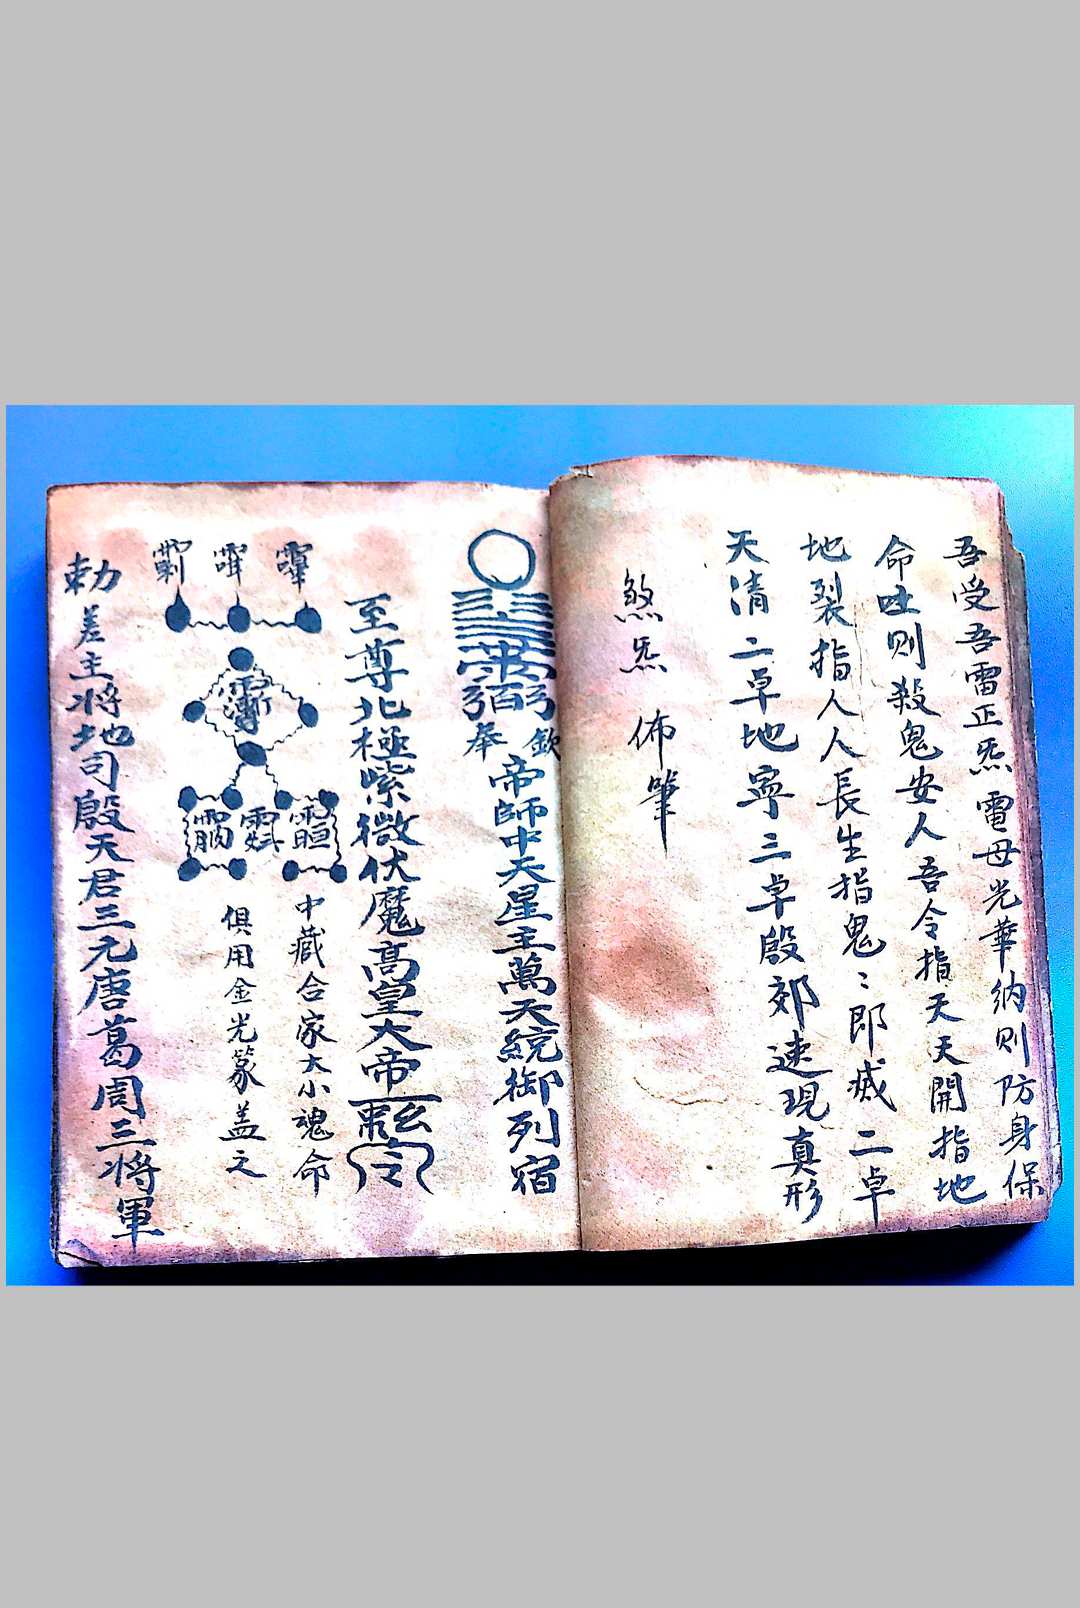 吾受吾雷正炁電母光華納則防身保
命吐则殺鬼安人吾令指天天開指地
地裂指人人長生指鬼〻即滅二卓
天清二卓地寧三卓殷郊速現真形
煞炁 佈筆
欽
奉
帝師中天星主萬天統御列宿
至尊北極紫微伏魔高皇大帝
令
中藏合家大小魂命
俱用金光篆盖之
勅差主将地司殷天君三元唐葛周三将軍